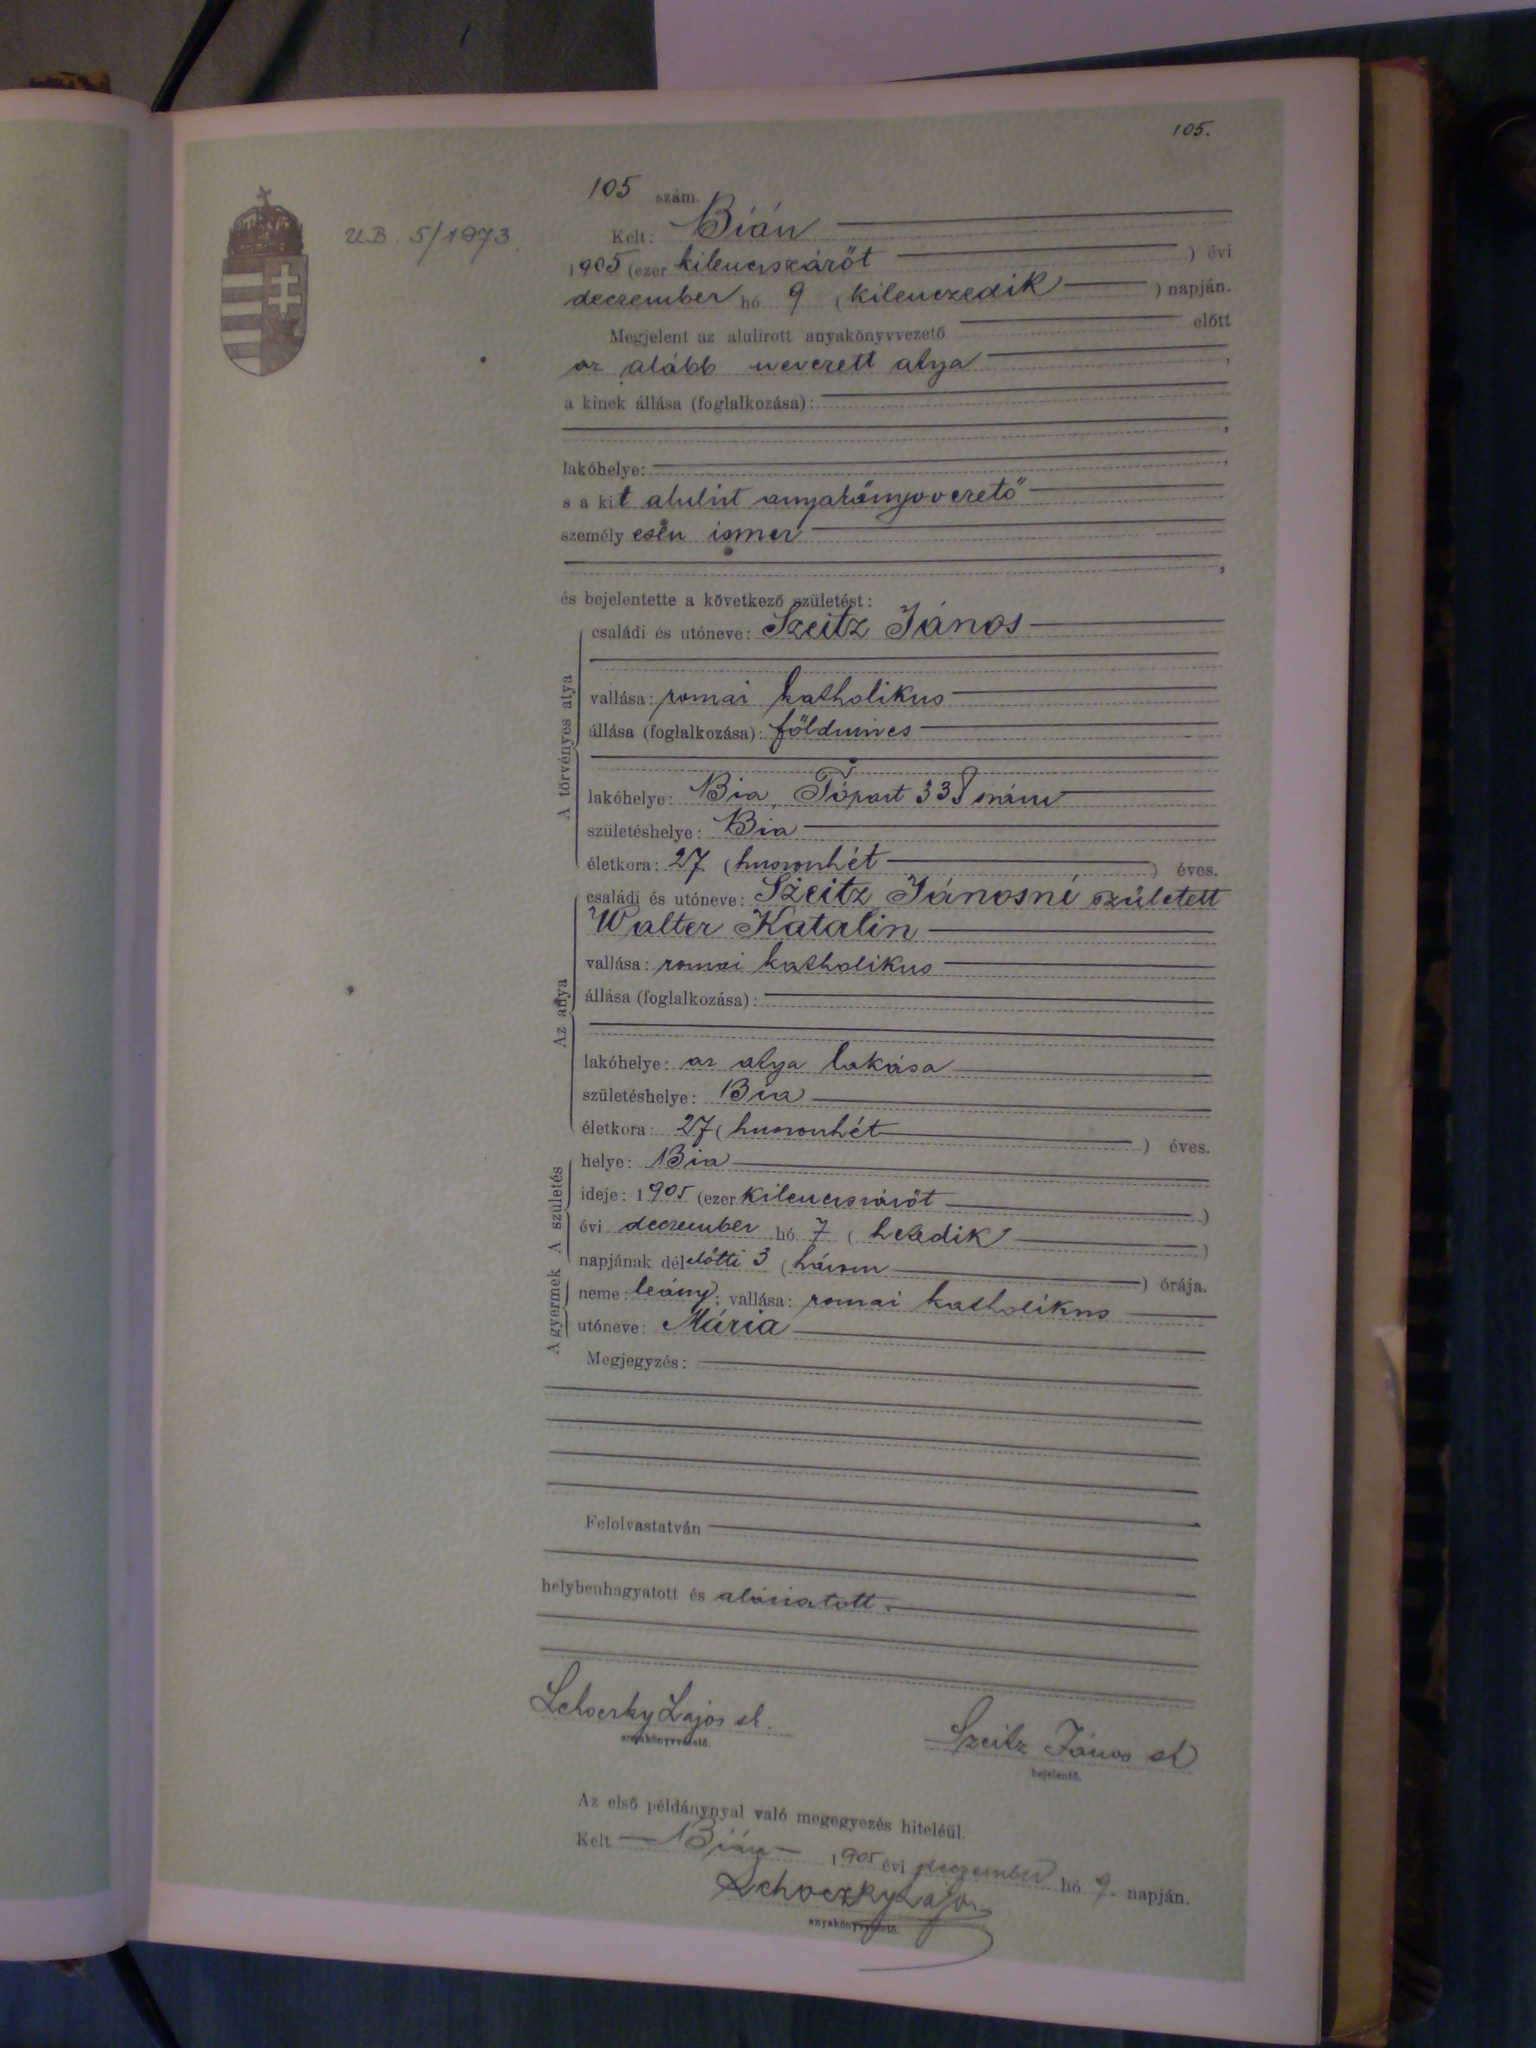 105.
105 szám.
U.B. 5/1973.
Kelt: Bián
1905 (ezer kilenczszázöt ) évi
deczember hó 9 (kilenczedik ) napján.
Megjelent az alulirott anyakönyvvezető előtt
az alább nevezett atya ,
a kinek állása (foglalkozása):
,
lakóhelye: ,
s a kit alulírt anyakönyvvezető
személyesen ismer
,
és bejelentette a következő születést:
A törvényes atya
családi és utóneve: Szeitz János
vallása: romai katholikus
állása (foglalkozása): földmíves
lakóhelye: Bia, Tópart 338 szám
születéshelye: Bia
életkora: 27 (huszonhét ) éves.
Az anya
családi és utóneve: Szeitz Jánosné született
Walter Katalin
vallása: romai katholikus
állása (foglalkozása):
lakóhelye: az atya lakása
születéshelye: Bia
életkora: 27 (huszonhét ) éves.
A születés
helye: Bia
ideje: 1905 (ezer kilenczszázöt )
évi deczember hó 7 (hetedik )
napjának délelőtti 3 (három ) órája.
A gyermek
neme: leány; vallása: romai katholikus
utóneve: Mária
Megjegyzés:
Felolvastatván
helybenhagyatott és aláíratott.
Lajos sk.
anyakönyvvezető.
Szeitz János sk
bejelentő.
Az első példánynyal való megegyezés hiteléül.
Kelt Bián 1905 évi deczember hó 9. napján.
Lajos
anyakönyvvezető.